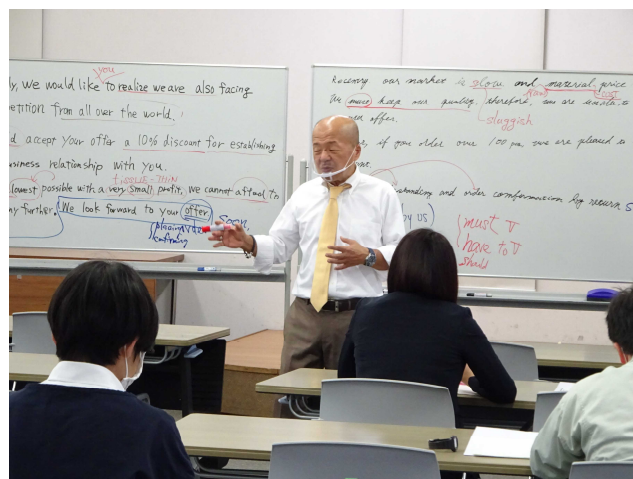 you
ly, we would like to realize we are also facing
petition from all over the world.
accept your offer a 10% discount for establishing
usiness relationship with you.
tissue-thin
lowest possible with a very small profit, we cannot afford to
ny further. We look forward to your offer. soon
placing
Recently our market is slow and material price
cost
We must keep our quality, therefore, we are unable to
offer.
sluggish
if your order over 100 pcs we are pleased to
standing and order confirmation by return.
by us
must V
have to V
should